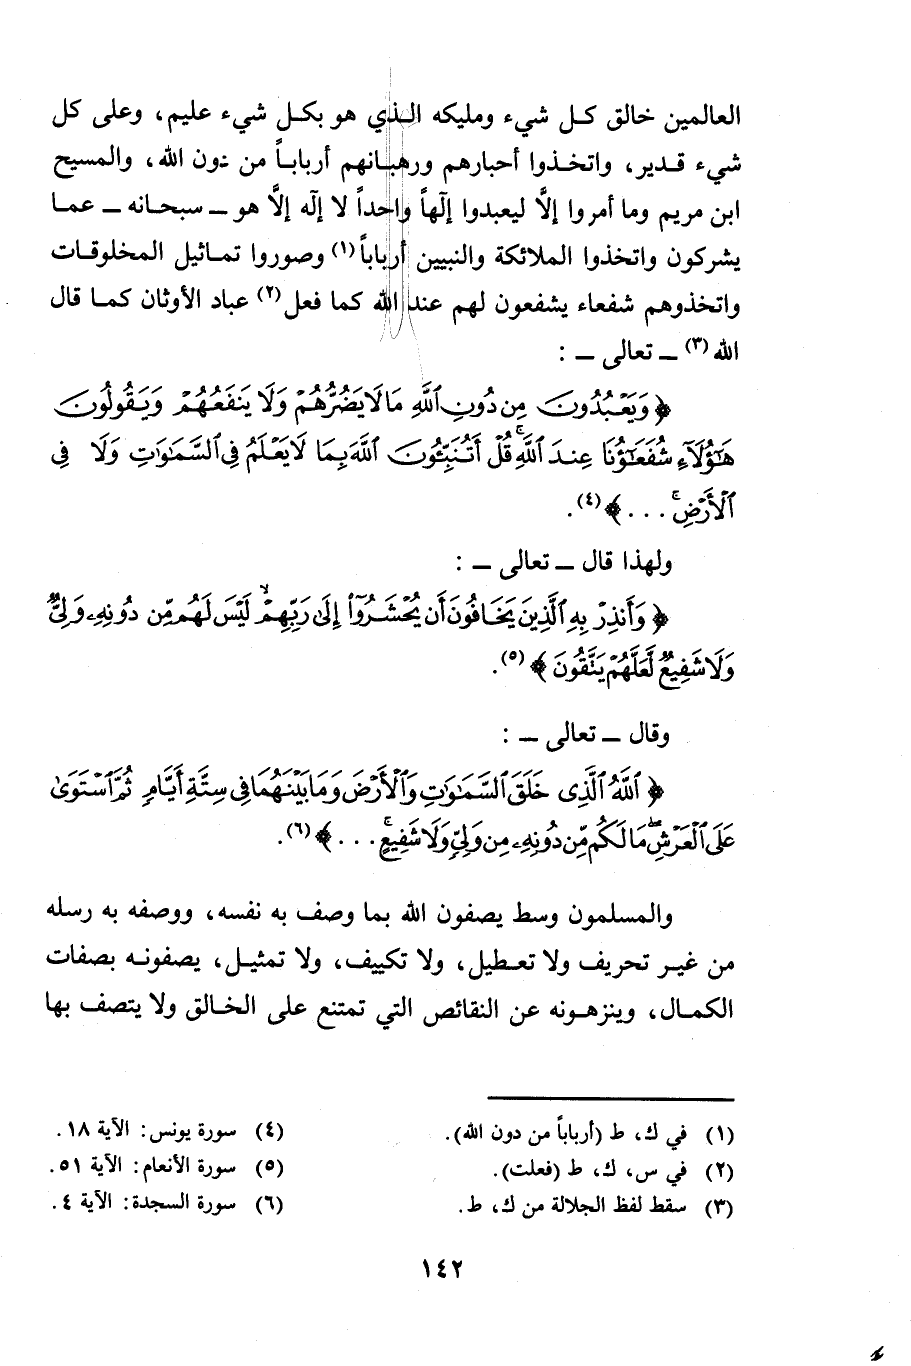 العالمين خالق كل شيء ومليكه الذي هو بكل شيء عليم، وعلى كل
شيء قدير، واتخذوا أحبارهم ورهبانهم أرباباً من دون الله، والمسيح
ابن مريم وما أمروا إلَّا ليعبدوا إلٰهاً واحداً لا إلٰه إلَّا هو ــ سبحانه ــ عما
يشركون واتخذوا الملائكة والنبيين أرباباً(١) وصوروا تماثيل المخلوقات
واتخذوهم شفعاء يشفعون لهم عند الله كما فعل(٢) عباد الأوثان كما قال
الله(٣) ــ تعالى ــ :
﴿ وَيَعْبُدُونَ مِن دُونِ ٱللَّهِ مَا لَا يَضُرُّهُمْ وَلَا يَنفَعُهُمْ وَيَقُولُونَ
هَٰٓؤُلَآءِ شُفَعَٰٓؤُنَا عِندَ ٱللَّهِ ۚ قُلْ أَتُنَبِّـُٔونَ ٱللَّهَ بِمَا لَا يَعْلَمُ فِى ٱلسَّمَٰوَٰتِ وَلَا فِى
ٱلْأَرْضِ ۚ . . . ﴾(٤).
ولهذا قال ــ تعالى ــ :
﴿ وَأَنذِرْ بِهِ ٱلَّذِينَ يَخَافُونَ أَن يُحْشَرُوٓا۟ إِلَىٰ رَبِّهِمْ ۙ لَيْسَ لَهُم مِّن دُونِهِۦ وَلِىٌّ
وَلَا شَفِيعٌ لَّعَلَّهُمْ يَتَّقُونَ ﴾(٥).
وقال ــ تعالى ــ :
﴿ ٱللَّهُ ٱلَّذِى خَلَقَ ٱلسَّمَٰوَٰتِ وَٱلْأَرْضَ وَمَا بَيْنَهُمَا فِى سِتَّةِ أَيَّامٍ ثُمَّ ٱسْتَوَىٰ
عَلَى ٱلْعَرْشِ ۖ مَا لَكُم مِّن دُونِهِۦ مِن وَلِىٍّ وَلَا شَفِيعٍ ۚ . . . ﴾(٦).
والمسلمون وسط يصفون الله بما وصف به نفسه، ووصفه به رسله
من غير تحريف ولا تعطيل، ولا تكييف، ولا تمثيل، يصفونه بصفات
الكمال، وينزهونه عن النقائص التي تمتنع على الخالق ولا يتصف بها
(١) في ك، ط (أرباباً من دون الله).
(٢) في س، ك، ط (فعلت).
(٣) سقط لفظ الجلالة من ك، ط.
(٤) سورة يونس: الآية ١٨.
(٥) سورة الأنعام: الآية ٥١.
(٦) سورة السجدة: الآية ٤.
١٤٢